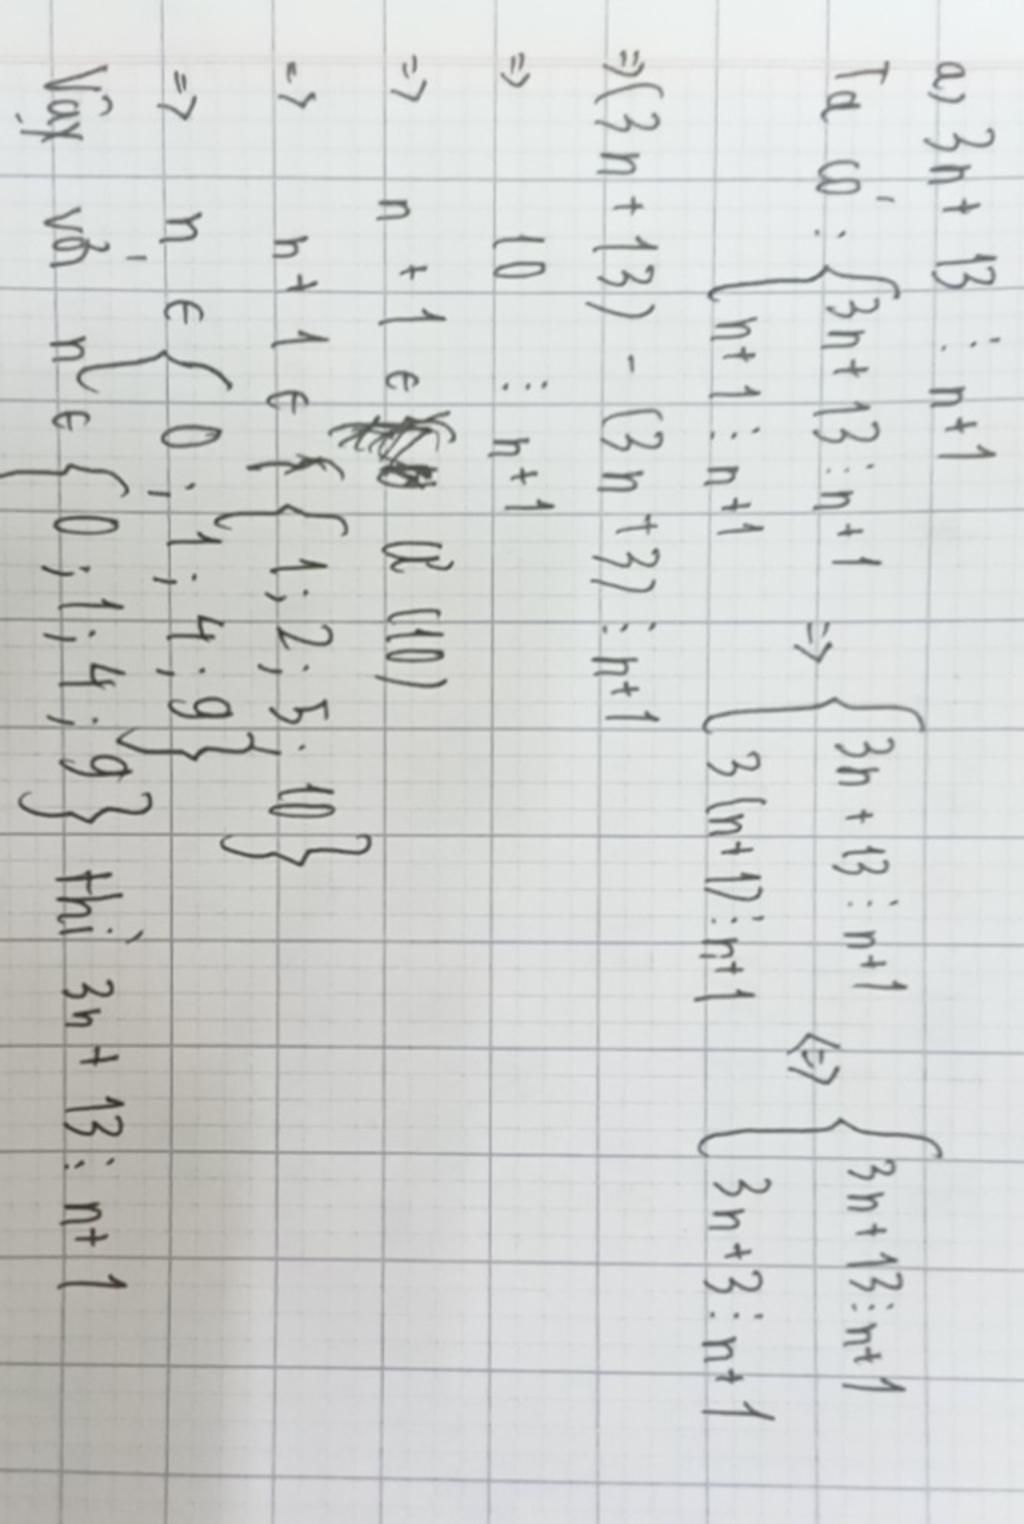 a) 3n + 13 ⋮ n+1
Ta có : { 3n + 13 ⋮ n + 1 => { 3n + 13 ⋮ n+1 <=> { 3n+13 ⋮ n+1
n+1 ⋮ n+1 3(n+1) ⋮ n+1 3n+3 ⋮ n+1
=> (3n + 13) - (3n +3) ⋮ n+1
=> 10 ⋮ n+1
=> n + 1 ∈ Ư (10)
=> n+ 1 ∈ { 1; 2; 5; 10 }
=> n ∈ { 0 ; 1; 4; 9 }
Vậy với n ∈ { 0 ; 1; 4; 9 } thì 3n + 13 ⋮ n+ 1